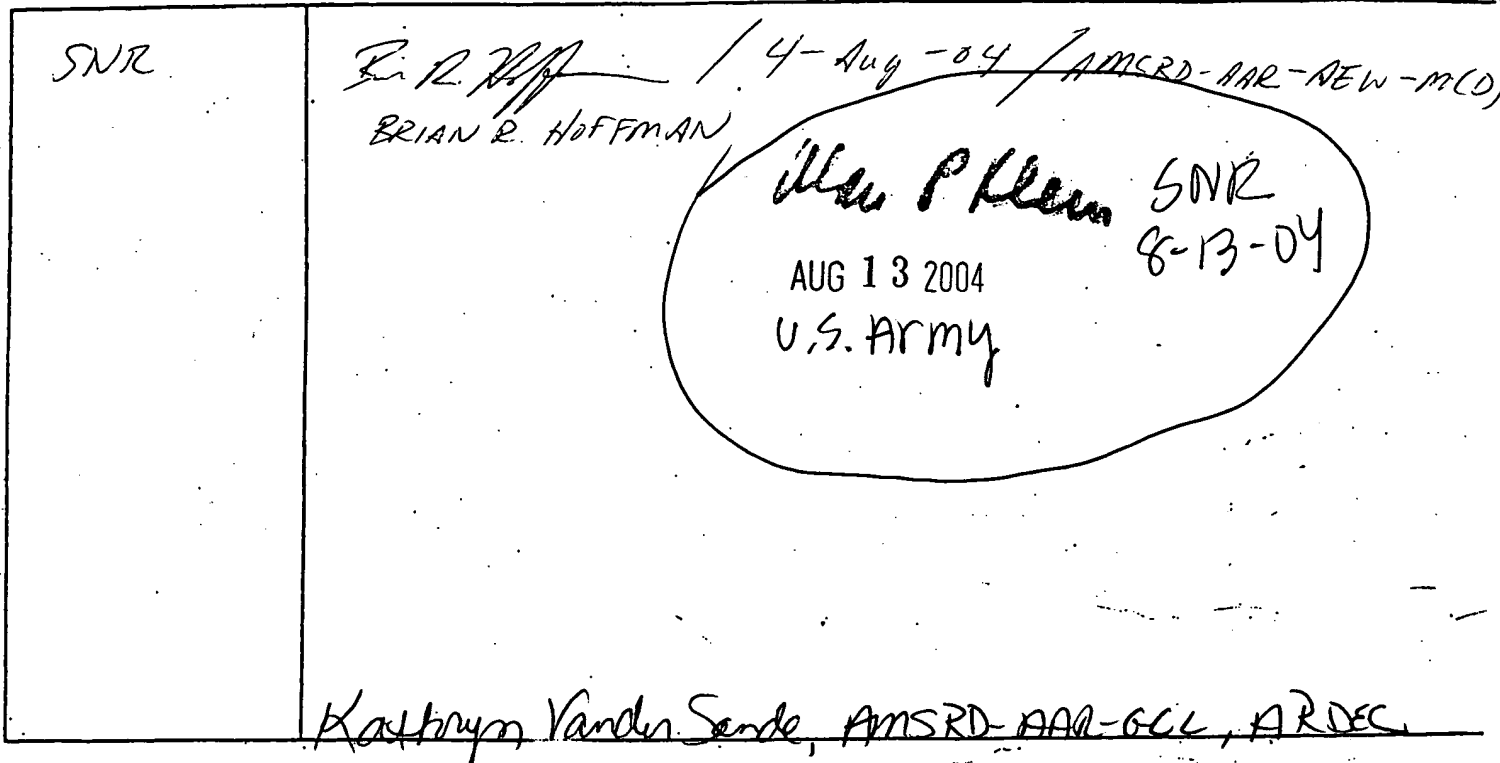 SNR
Brian R. Hoffman / 4-Aug-04 / AMSRD-AAR-AEW-M(D)
BRIAN R. HOFFMAN
P Klein SNR
8-13-04
AUG 13 2004
U.S. Army
Kathryn Vander Sande, AMSRD-AAR-GCL, ARDEC